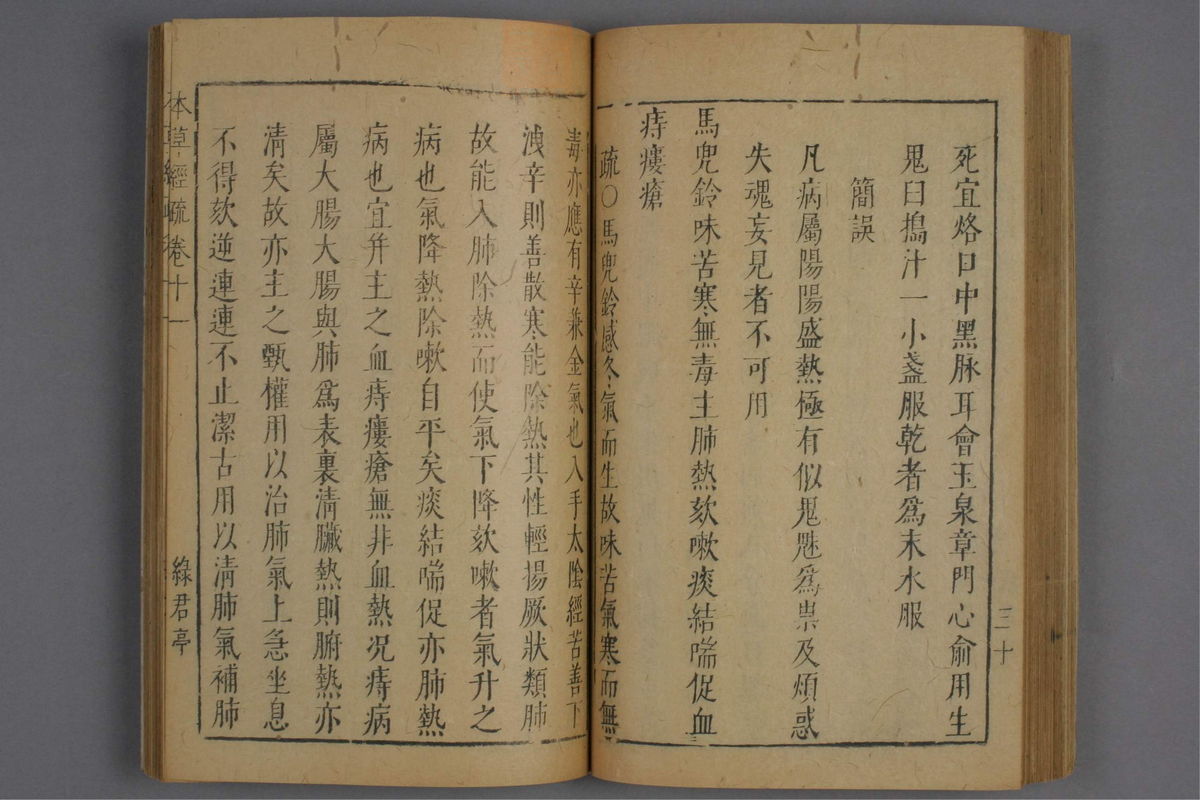 死宜烙日中黑脉耳會玉泉章門心俞用生
鬼臼搗汁一小盞服乾者爲末水服
簡誤
凡病屬陽陽盛熱極有似鬼魅爲祟及煩惑
失魂妄見者不可用
馬兜鈴味苦寒無毒主肺熱欬嗽痰結喘促血
痔瘻瘡
疏○馬兜鈴感冬氣而生故味苦氣寒而無
三十
毒亦應有辛兼金氣也入手太陰經苦善下
洩辛則善散寒能除熱其性輕揚厥狀類肺
故能入肺除熱而使氣下降欬嗽者氣升之
病也氣降熱除嗽自平矣痰結喘促亦肺熱
病也宜并主之血痔瘻瘡無非血熱况痔病
屬大腸大腸與肺爲表裏淸臟熱則腑熱亦
淸矣故亦主之甄權用以治肺氣上急坐息
不得欬逆連連不止潔古用以淸肺氣補肺
本草經疏卷十一
綠君亭